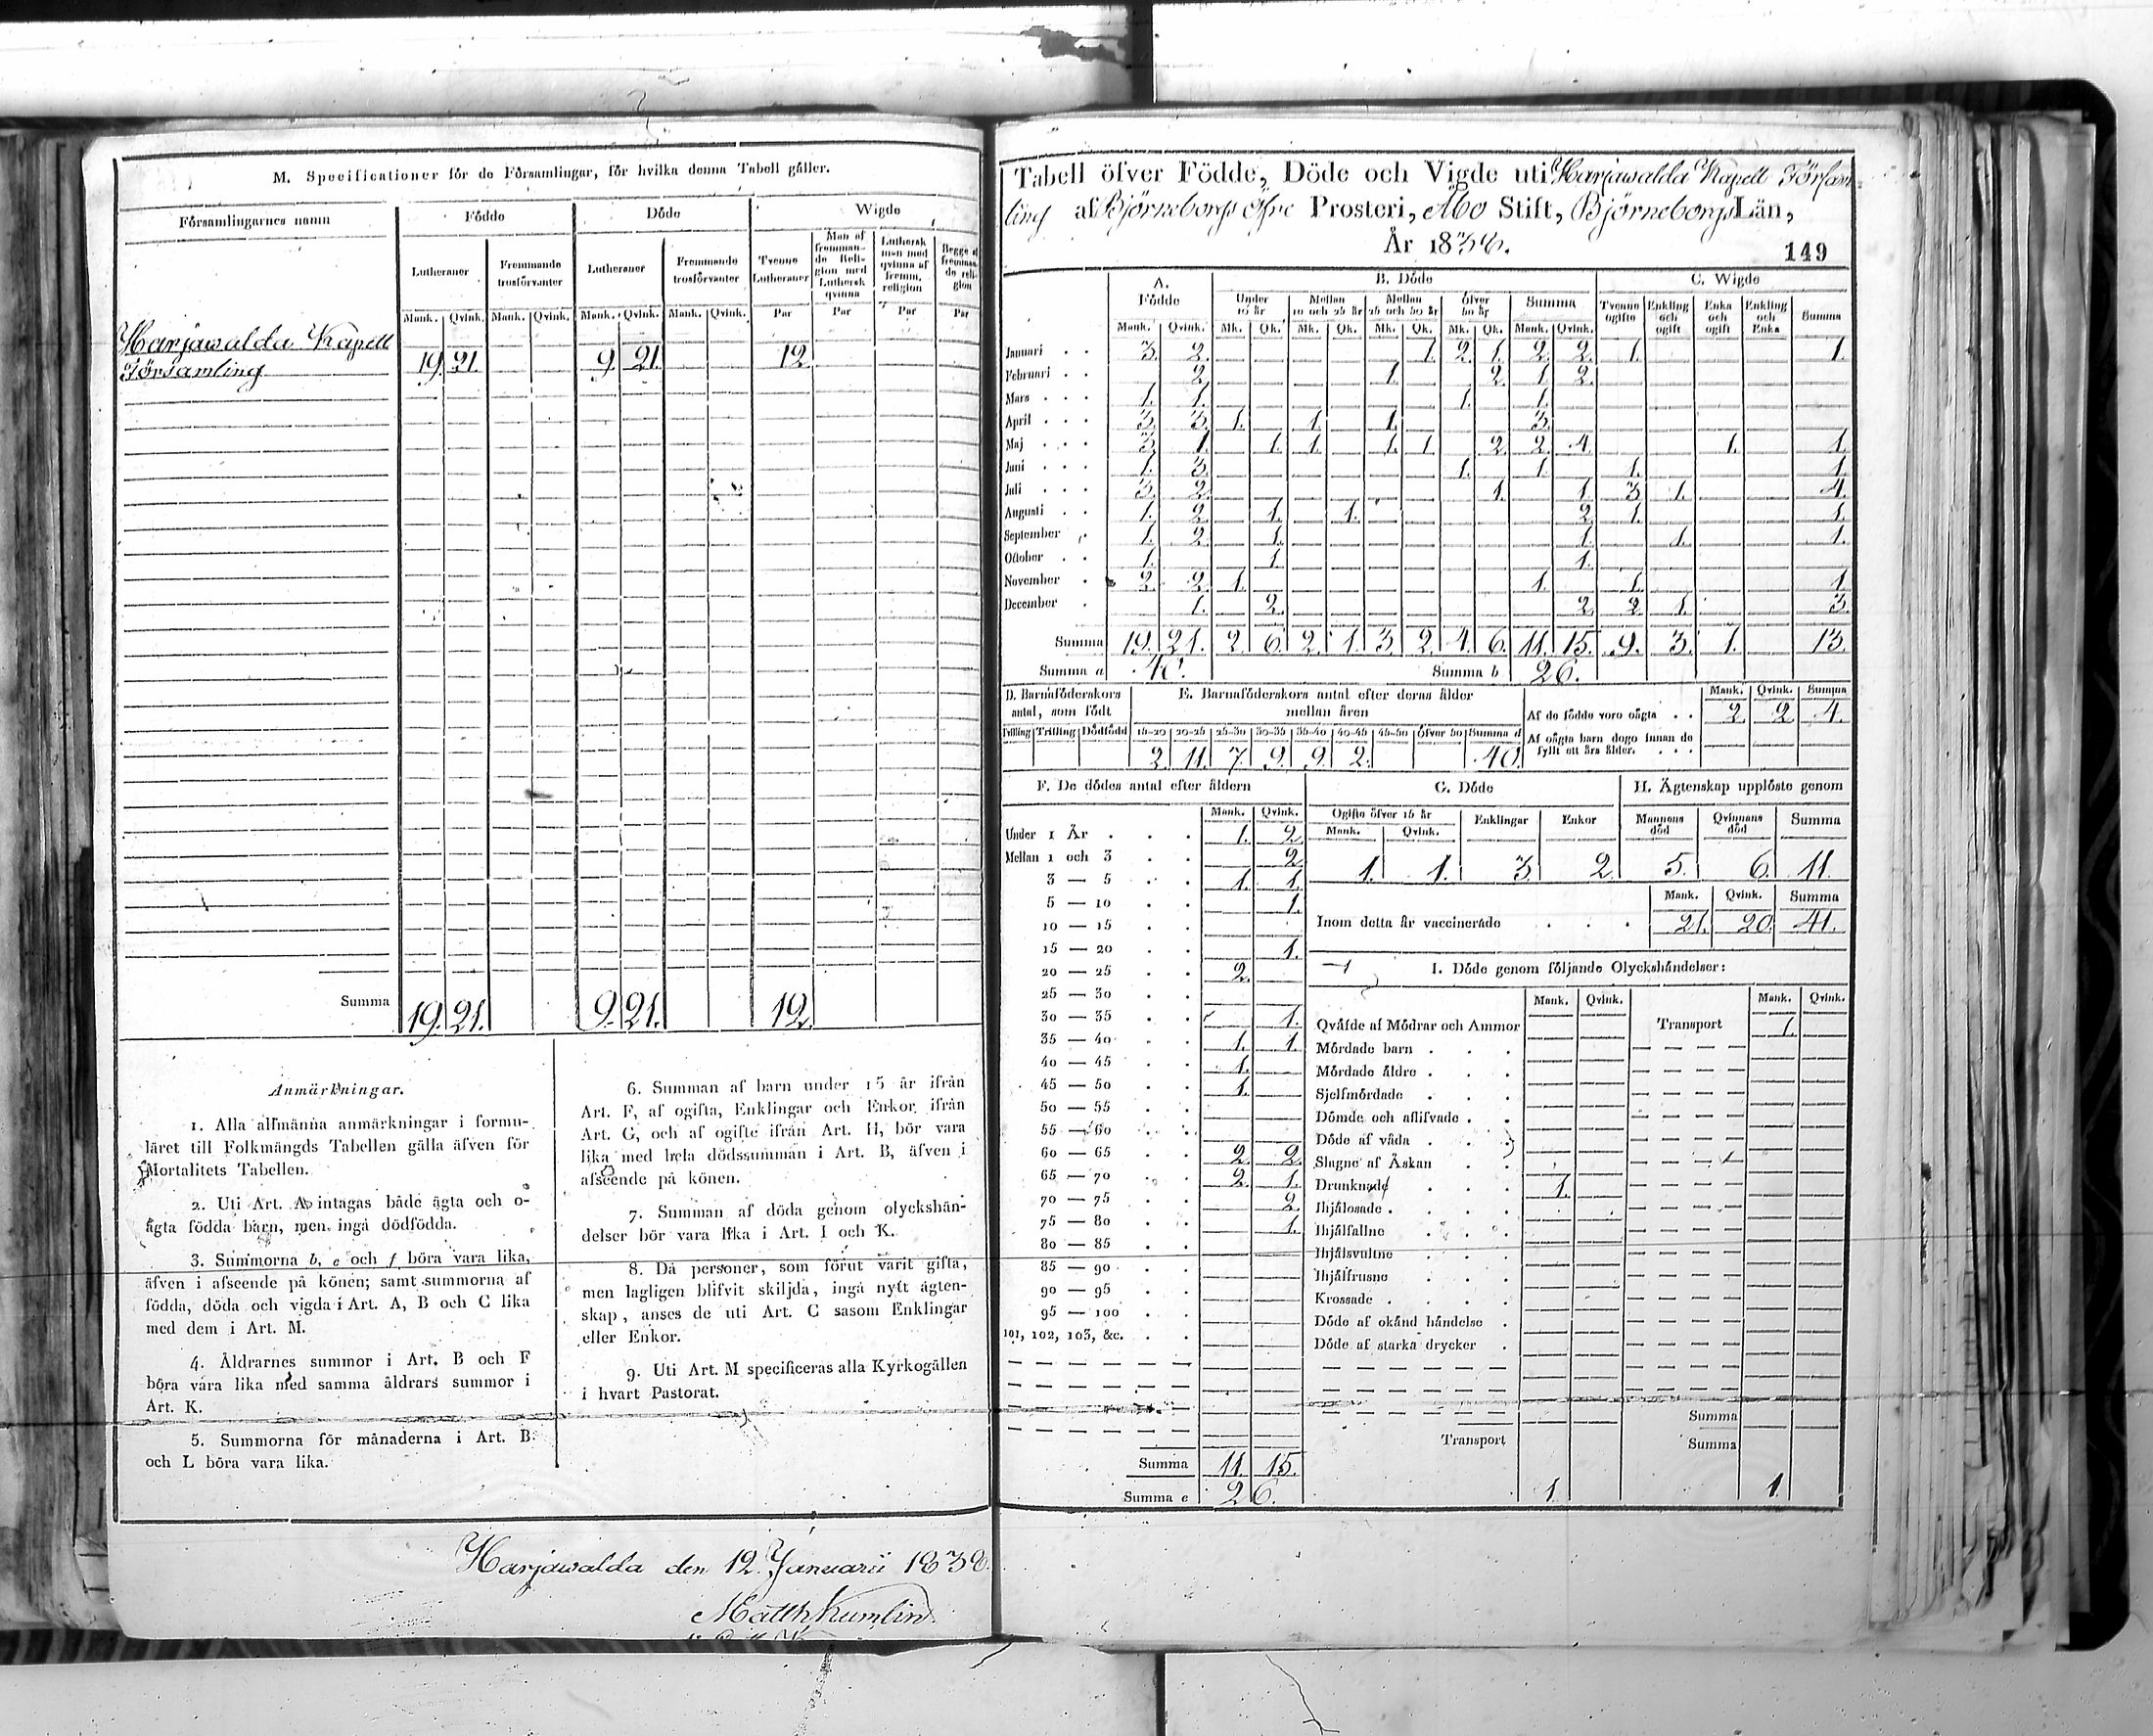 M. Specificationer för de Församlingar, för hvilka denna Tabell gäller.
Församlingarnes namn Födde Döde Wigde
Lutheraner Fremmande trosförvanter Lutheraner Fremmande trosförvanter Tvenne Lutheraner Man af fremmande Religion med Luthersk qvinna Luthersk man med qvinna af fremm. religion Begge af fremmande religion
Mank. Qvink. Mank. Qvink. Mank. Qvink. Mank. Qvink. Par Par Par Par
Harjawalda Kapell
Församling 19. 21. 9. 21. 12.
Summa 19. 21. 9. 21. 12.
Anmärkningar.
1. Alla allmänna anmärkningar i formu-
läret till Folkmängds Tabellen gälla äfven för
Mortalitets Tabellen.
2. Uti Art. A intagas både ägta och o-
ägta födda barn, men inga dödfödda.
3. Summorna b, e och f böra vara lika,
äfven i afseende på könen; samt summorna af
födda, döda och vigda i Art. A, B och C lika
med dem i Art. M.
4. Åldrarnes summor i Art. B och F
böra vara lika med samma åldrars summor i
Art. K.
5. Summorna för månaderna i Art. B
och L böra vara lika.
6. Summan af barn under 15 år ifrån
Art. F, af ogifta, Enklingar och Enkor ifrån
Art. G, och af ogifte ifrån Art. H, bör vara
lika med hela dödssumman i Art. B, äfven i
afseende på könen.
7. Summan af döda genom olyckshän-
delser bör vara lika i Art. I och K.
8. Då personer, som förut varit gifta,
men lagligen blifvit skiljda, ingå nytt ägten-
skap, anses de uti Art. C såsom Enklingar
eller Enkor.
9. Uti Art. M specificeras alla Kyrkogällen
i hvart Pastorat.
Harjawalda den 12. Januarii 1838
Matth Kumlin
Tabell öfver Födde, Döde och Vigde uti Harjawalda Kapell Försam-
ling af Björneborgs öfre Prosteri, Åbo Stift, Björneborgs Län,
År 18
149
A. Födde B. Döde C. Wigde
Under 10 år Mellan 10 och 25 år Mellan 25 och 50 år öfver 50 år Summa Tvenne ogifte Enkling och ogift Enka och ogift Enkling och Enka Summa
Mank. Qvink. Mk. Qk. Mk. Qk. Mk. Qk. Mk. Qk. Mank. Qvink.
Januari 3. 2. 1. 2. 1. 2. 2. 1. 1.
Februari 2. 1. 2. 1. 2.
Mars 1. 1. 1. 1.
April 3. 3. 1. 1. 1. 3.
Maj 3. 1. 1. 1. 1. 1. 2. 2. 4. 1. 1.
Juni 1. 3. 1. 1. 1. 1.
Juli 3. 2. 1. 1. 3 1. 4.
Augusti 1. 2. 1. 1. 2. 1. 1.
September 1. 2. 1. 1. 1. 1.
October 1. 1. 1.
November 2. 2. 1. 1. 1. 1
December 1. 2. 2. 2. 1. 3.
Summa 19. 21. 2. 6. 2. 1. 3. 2. 4. 6. 11. 15. 9. 3. 1. 13.
Summa a 40. Summa b 26.
D. Barnaföderskors antal, som födt
E. Barnaföderskors antal efter deras ålder mellan åren
Mank. Qvink. Summa
Af de födde voro oägta 2. 2. 4.
Tvilling Trilling Dödfödd 15-20 20-25 25-30 30-35 35-40 40-45 45-50 öfver 50 Summa d
2. 11. 7. 9. 9. 2. 40.
Af oägta barn dogo innan de
fyllt ett års ålder.
F. De dödes antal efter åldern
Mank. Qvink.
Under 1 År 1. 2.
Mellan 1 och 3 2.
3 — 5 1. 1.
5 — 10 1.
10 — 15
15 — 20 1.
20 — 25 2.
25 — 30
30 — 35 1.
35 — 40 1. 1.
40 — 45 1.
45 — 50 1.
50 — 55
55 — 60
60 — 65 2. 2.
65 — 70 2. 1.
70 — 75 2.
75 — 80 1.
80 — 85
85 — 90
90 — 95
95 — 100
101, 102, 103, &c.
Summa 11. 15.
Summa e 26.
G. Döde
Ogifte öfver 15 år Enklingar Enkor
Mank. Qvink.
1. 1. 3. 2.
H. Ägtenskap upplöste genom
Mannens död Qvinnans död Summa
5. 6. 11.
Mank. Qvink. Summa
Inom detta år vaccinerade 21. 20. 41.
I. Döde genom följande Olyckshändelser:
Mank. Qvink. Mank. Qvink.
Qväfde af Mödrar och Ammor Transport 1.
Mördade barn
Mördade äldre
Sjelfmördade
Dömde och aflifvade
Döde af våda
Slagne af Åskan
Drunknade 1.
Ihjälosade
Ihjälfallne
Ihjälsvultne
Ihjälfrusne
Krossade
Döde af okänd händelse
Döde af starka drycker
Summa
Transport Summa
1. 1